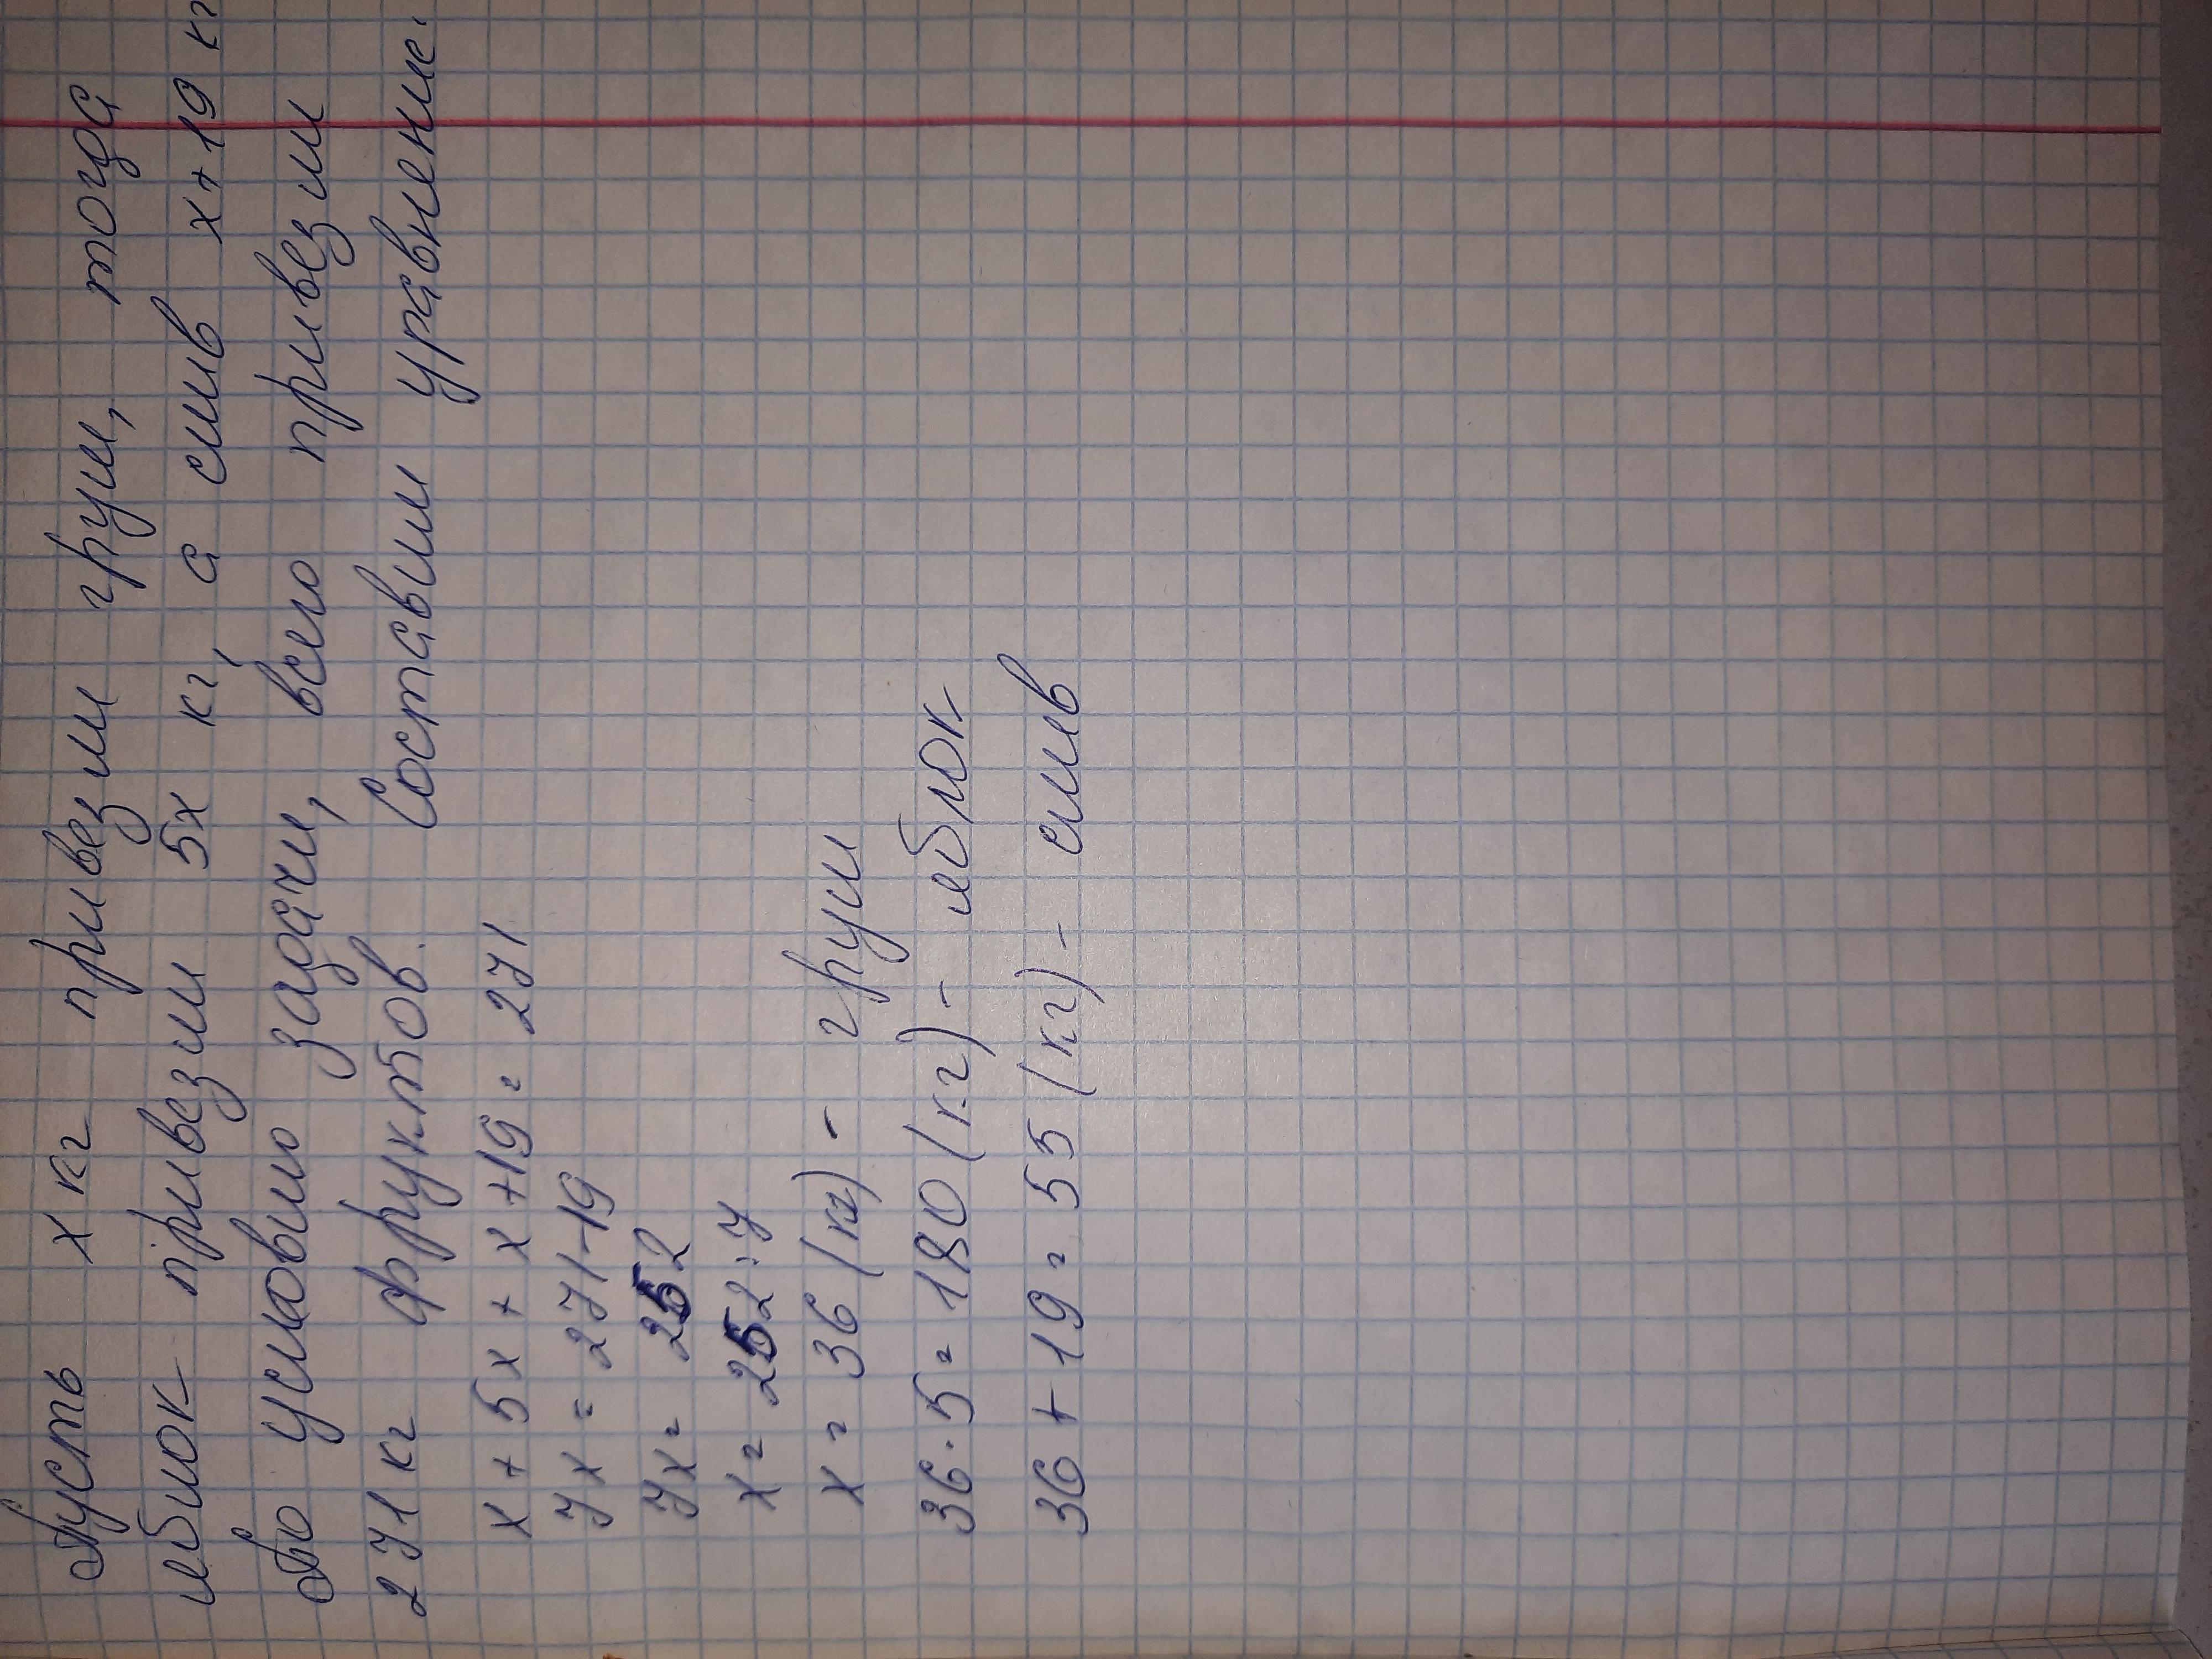 Пусть x кг привезли груш, тогда
яблок привезли 5x кг, а слив x+19 кг
По условию задачи, всего привезли
271 кг фруктов. Составим уравнение.
x + 5x + x +19 = 271
7x = 271-19
7x = 252
x = 252:7
x = 36 (кг) - груш
36·5 = 180 (кг) - яблок
36+19 = 55 (кг) - слив